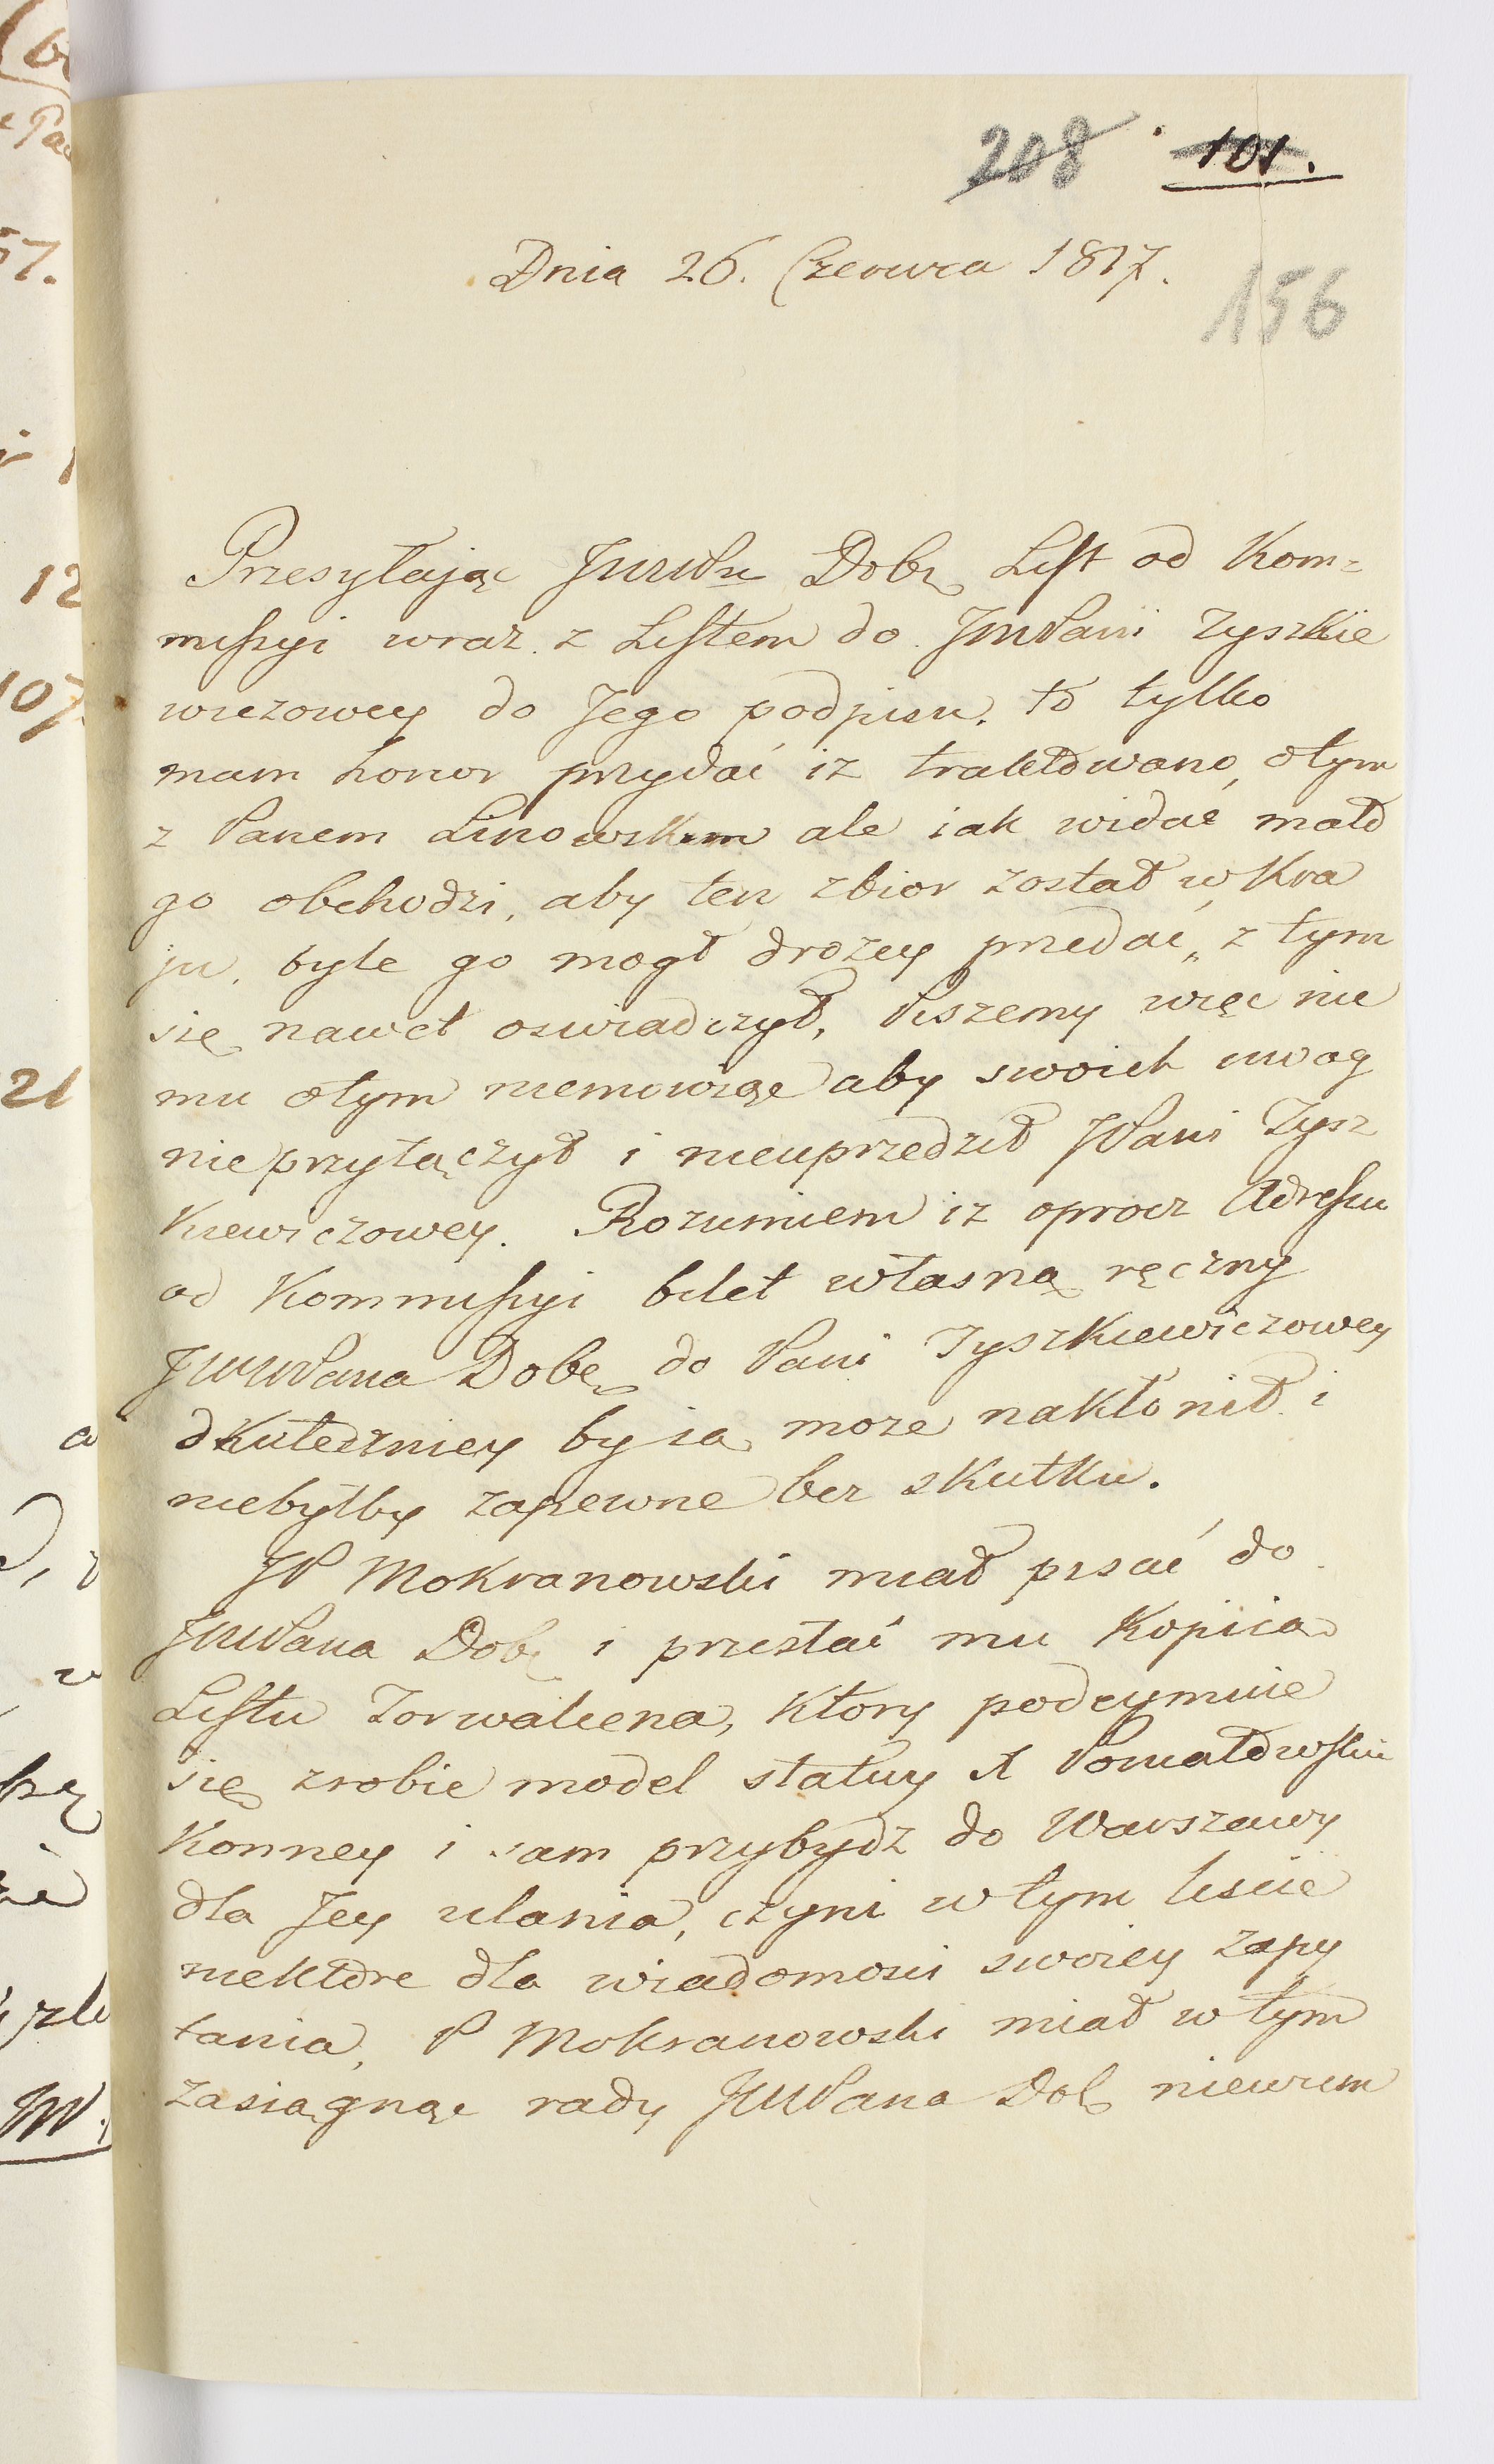 208 101.
Dnia 26. Czerwca 1817.
156
Przesyłaiąc JWWPu Dobr List od Kom=
missyi wraz z Listem do JMPani Tyszkie
wiczowey do Jego podpisu. to tylko
mam honor przydać iz traktowano otym
z Panem Linowskim ale iak widać mało
go obchodzi, aby ten zbior został w Kra
ju, byle go mogł drozey przedać, z tym
się nawet oswiadczył, Piszemy więc nic
mu otym niemowiąc aby swoich uwag
nieprzyłączył i nieuprzedził JPani Tysz
kiewiczowey. Rozumiem iz oprocz Adressu
od Kommissyi bilet własną ręczny
JWWPana Dobr do Pani Tyszkiewiczowey
skuteczniey by ią moze nakłonił i
niebyłby zapewne bez skutku.
JP Mokranowski miał pisać do
JWWPana Dobr i przesłać mu kopiią
Listu Torwalsena, ktory podeymuie
się zrobić model statuy X Poniatowskie
Konney i sam przybydz do Warszawy
dla Jey ulania, czyni w tym liscie
niektóre dla wiadomosci swoiey zapy
tania, P Mokranowski miał w tym
zasiągnąć rady JWWPana Dob niewiem